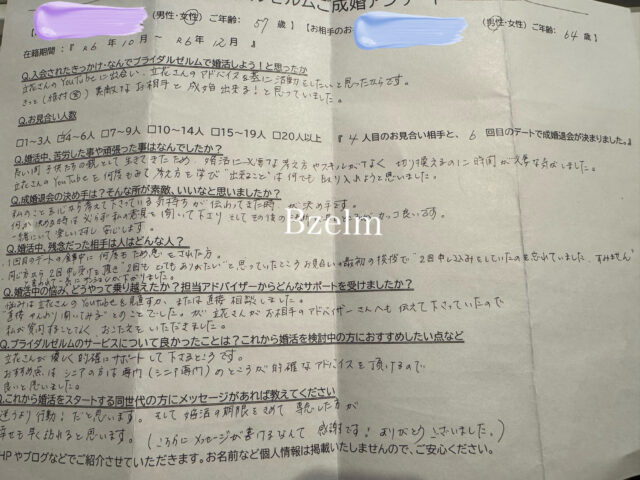 ゼルムご成婚アンケート
(男性・女性) ご年齢: 57 歳 】【お相手のお
(男性・女性) ご年齢: 64 歳 】
在籍期間:『 R6 年 10月 ~ R6年 12月 』
Q.入会されたきっかけ・なんでブライダルゼルムで婚活しよう!と思ったか
立花さんのYouTubeに出会い、立花さんのアドバイスを基に活動をしたいと思ったからです。
きっと素敵なお相手と成婚出来る!と思っていました。
Q.お見合い人数
□1~3人 ☑4~6人 □7~9人 □10~14人 □15~19人 □20人以上 『 4 人目のお見合い相手と、 6 回目のデートで成婚退会が決まりました。』
Q.婚活中、苦労した事や頑張った事はなんでしたか?
長い間子供たちの親として生きてきたため、婚活に必要な考え方やスキルがなく 切り換えるのに時間が大変な点がしました。
立花さんのYouTubeを何度もみて考え方を学び "出来ること"は何でもとり入れようと思いました。
Q.成婚退会の決め手は?そんな所が素敵、いいなと思いましたか?
私のことを心から考えて下さっている気持ちが伝わってきた時が決め手です。
何か決める時は必ず私の意見を聞いて下さり そしてその後の カッコ良いです。
一緒にいて楽しいし安心します。
Bzelm
Q.婚活中、残念だった相手は人はどんな人?
1回目のデートの食事中に何度もため息をされた方。
同じ方から2回申し受けを頂き"2回もとてもありがたい"と思っていたところお見合いの最初の挨拶で"2回申し込みをしていたのを忘れていました、すみません"
Q.婚活中の悩み、どうやって乗り越えたか?担当アドバイザーからどんなサポートを受けましたか?
悩みは立花さんのYouTubeを見直すか、または直接相談しました。
"直接 聞いてみる"とのことでした。が 立花さんがお相手のアドバイザーさんへも伝えて下さっていたので
私が質問することなく、お応えをいただきました。
Q.ブライダルゼルムのサービスについて良かったことは?これから婚活を検討中の方におすすめしたい点など
立花さんが優しく的確にサポートして下さるところです。
おすすめ点は シニアの方は専門(シニア専門)のところが的確なアドバイスを頂けるので
良いと思いました。
Q.これから婚活をスタートする同世代の方にメッセージがあれば教えてください
迷うより行動!だと思います。そして婚活の期限をきめて 専念した方が
幸せも早く訪れると思います。(こちらにメッセージが書けるなんて感謝です!ありがとうございました。)
HPやブログなどでご紹介させていただきます。お名前など個人情報は掲載いたしませんので、ご安心ください。